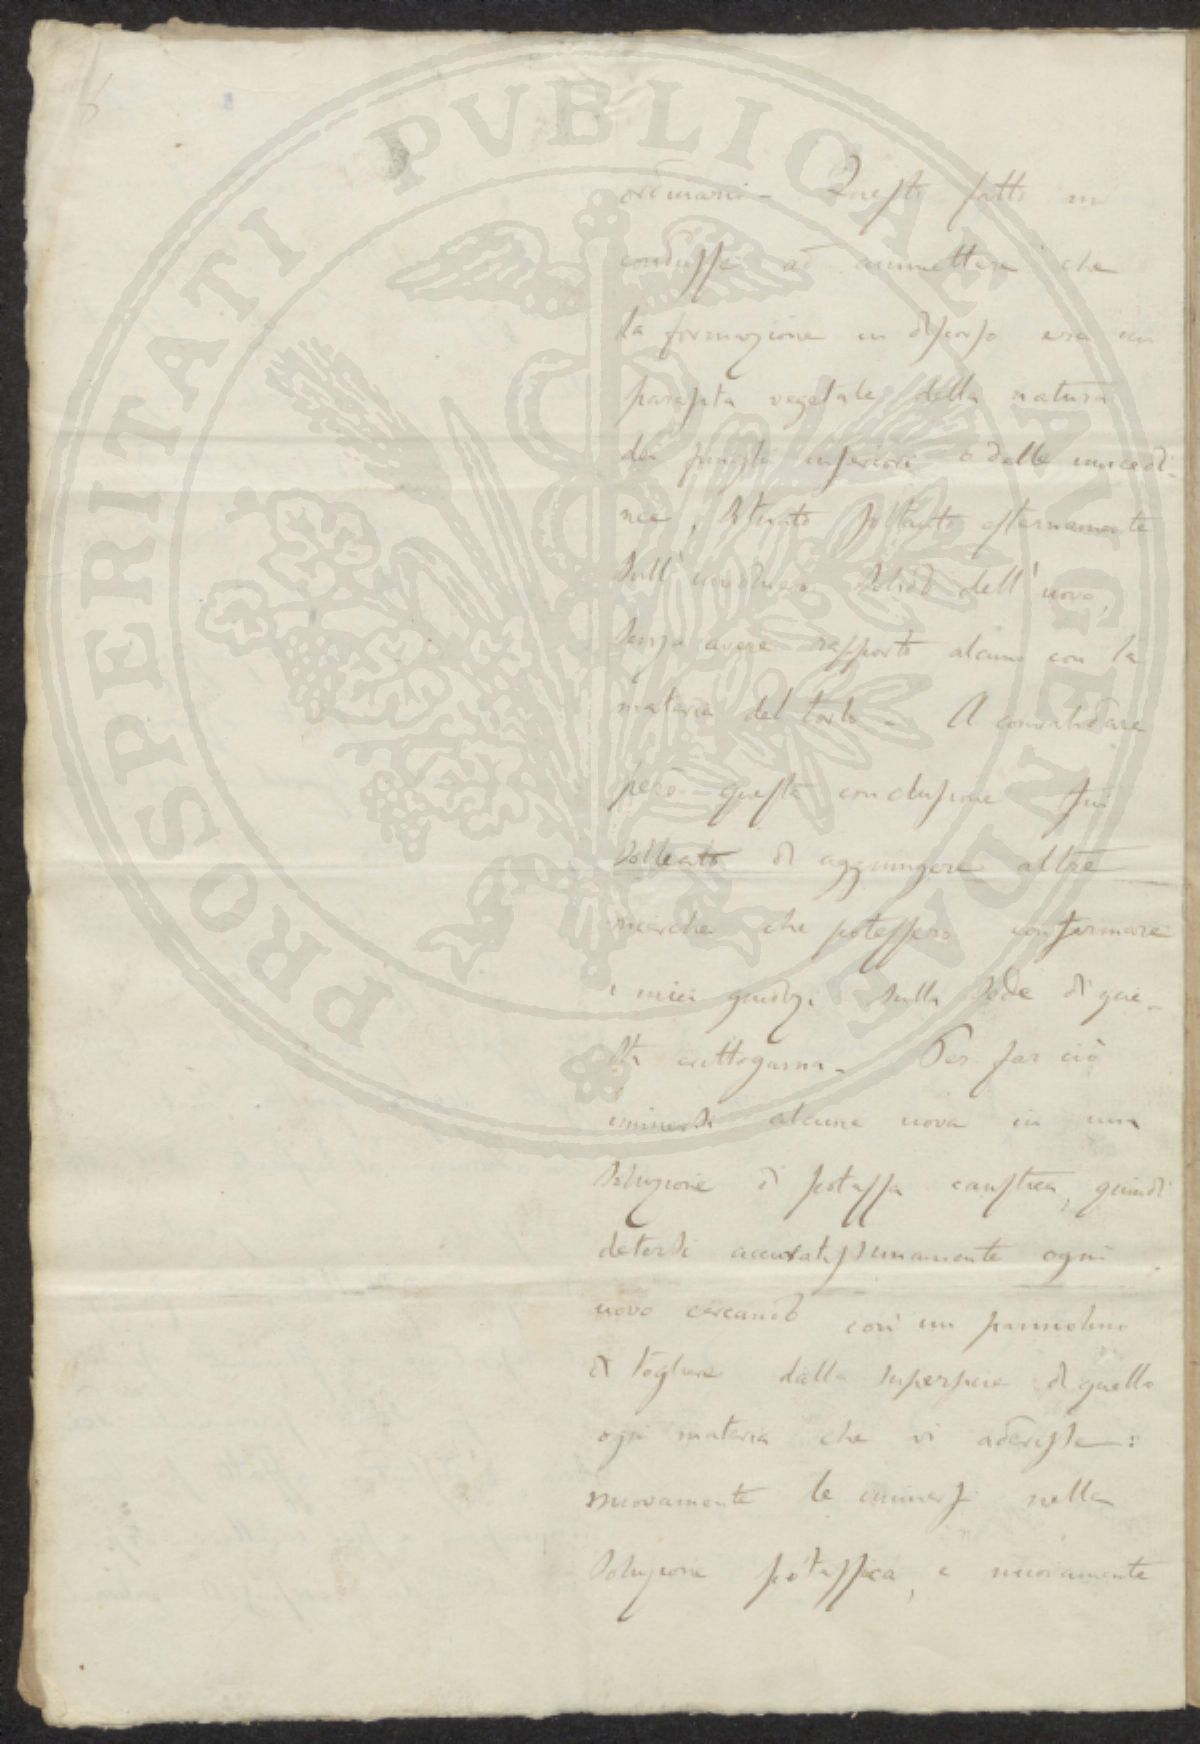 PROSPERITATI PVBLICAE AVGENDAE
ordinario - Questo fatto mi
condusse ad ammettere che
la formazione in discorso era un
parassita vegetale della natura
dei funghi inferiori o delle mucedi-
nee, situato soltanto esternamente
sull' involucro solido dell' uovo,
senza avere rapporto alcuno con la
materia del torlo - A convalidare
però questa conclusione fui
di aggiungere altre
ricerche che potessero confermare
i miei giudizi sulla sede di que-
sta crittogama - Per far ciò
immersi alcune uova in una
soluzione di potassa caustica, quindi
detersi accuratissimamente ogni
uovo cercando con un pannolino
di togliere dalla superficie di quello
ogni materia che vi aderisse:
nuovamente le immersi nella
soluzione potassica, e nuovamente